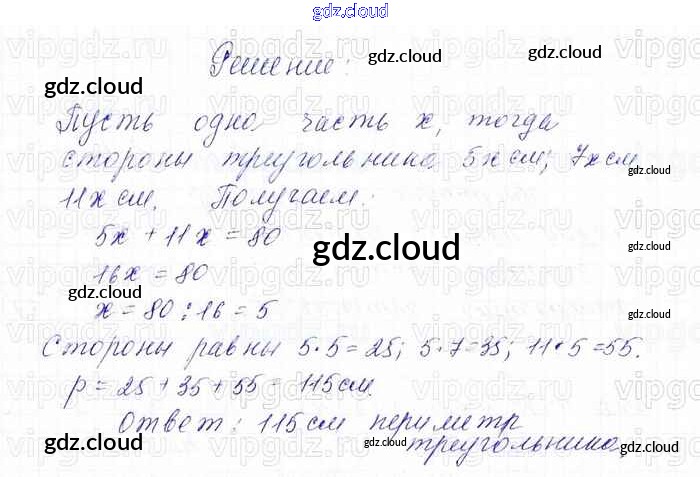 gdz.cloud
Решение:
Пусть одна часть x, тогда
стороны треугольника 5x см; 7x см
11x см. Получаем:
5x + 11x = 80
16x = 80
x = 80 : 16 = 5
Стороны равны 5·5=25; 5·7=35; 11·5=55.
p = 25 + 35 + 55 = 115 см.
Ответ: 115 см периметр
треугольника.
gdz.cloud
gdz.cloud
gdz.cloud
gdz.cloud
gdz.cloud
gdz.cloud
gdz.cloud
gdz.cloud
gdz.cloud
gdz.cloud